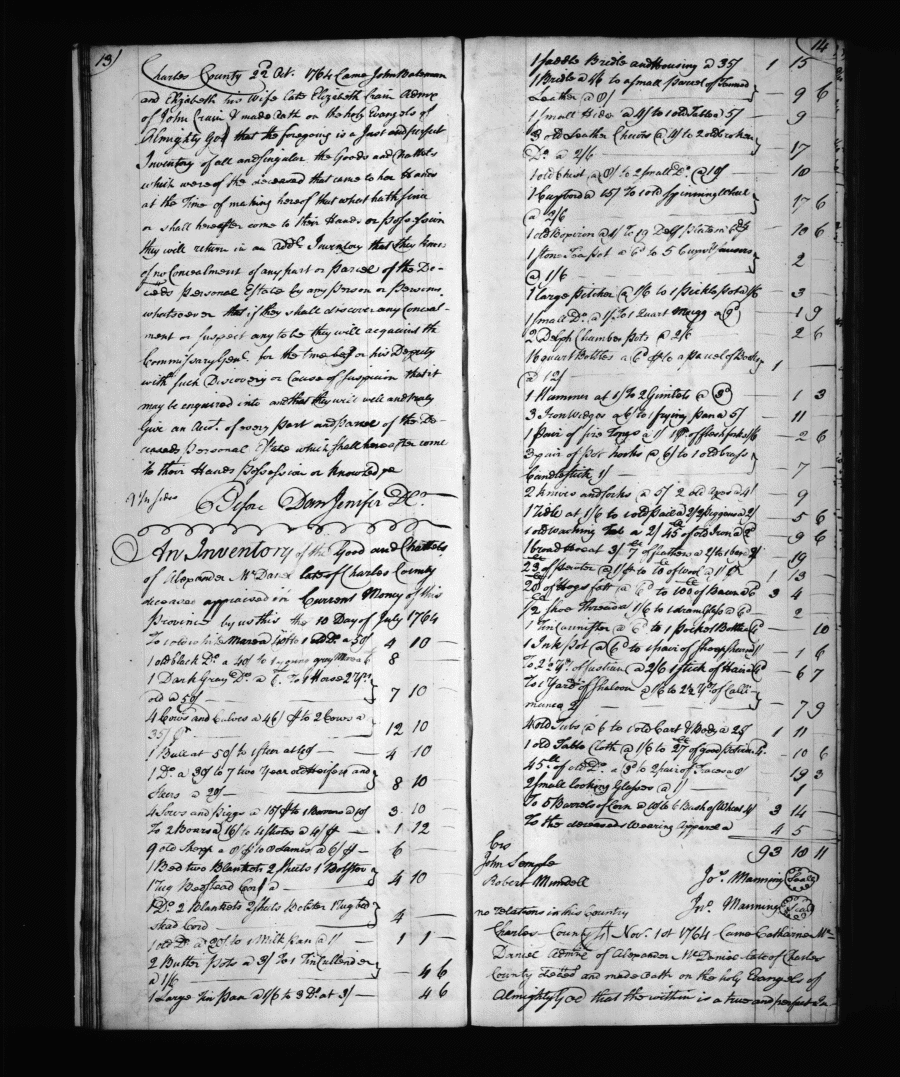 13)
Charles County 22d Oct. 1764 Came John Bateman
and Elizabeth his Wife late Elizabeth Crain Admx
of John Crain & made Oath on the holy Evangels of
Almighty God that the foregoing is a Just and perfect
Inventory of all and singular the Goods and Chattels
which were of the deceased that came to her Hands
at the Time of making hereof that what hath since
or shall hereafter come to their Hands or Possession
they will return in an addl. Inventory that they know
of no Concealment of any part or Parcel of the De-
ceds Personal Estate by any Person or Persons
whatsoever that if they shall discover any Conceal-
ment or Suspect any to be they will acquaint the
Commissary Genl. for the time being or his Deputy
with such Discovery or Cause of Suspicion that it
may be enquired into and that they will well and truly
Give an Acct. of every Part and Parcel of the De-
ceaseds Personal Estate which shall hereafter come
to their Hands Possession or Knowledge
Before Danl Jenifer DC
An Inventory of the Good and Chattels
of Alexander McDaniel late of Charles County
deceased appraised in Current Money of this
Province by us this the 10 Day of July 1764
To 1 old white Mare a 40/ to 1 old Do. a 50/ 4 10 —
1 old black Do. a 40/ to 1 young gray Mare a 6 8 —
1 Dark Gray Do. a to 1 Horse 2 Yrs.
old a 50/ — 7 10 —
4 Cows and Calves a 46/ to 2 Cows a
35/ — 12 10
1 Bull at 50/ to — 4 10
1 Do. a 30/ to 7 two Year old Heifers and
Steers a 20/ — 8 10 —
4 Sows and Piggs a 15/ to 1 Barrow a 10/ 3 10 —
To 2 Boars a 16/ to 4 Shotes a 4/ — 1 12 —
9 old Sheep a 8/ to 8 Lambs a 6/ — 6 —
1 Bed two Blankets 2 Sheets 1 Bolster
1 Rug Bedstead Cord a — 4 10 —
1 Do. 2 Blankets 2 Sheets Bolster 1 Rug Bed
stead Cord — 4 —
1 old Do. a 20/ to 1 Milk Pan a 1/ — 1 1 —
2 Butter Pots a 3/ To 1 Tin Cullender
a 1/6 — 4 6
1 Large Tin Pan a 1/6 to 3 Do. at 3/ — 4 6
14
1 Saddle Bridle and Housing a 35/ 1 15
1 Bridle a 1/6 to a small parcel of Tanned
Leather a 8/ — 9 6
1 small Hide a 4/ to 1 old Table a 5/ 9
old Leather Chairs to 2 old broken
Do. a 2/6 — 17
1 old Chest a 8/ to 2 small Do. 10
1 Cupboard a 15/ To 1 old spinning Wheel
a 2/6 17 6
1 old to 19 Delf Plates 10 6
1 Stone Tea Pot a 6d to 5 Cups & saucers
a 1/6 2
1 large Pitcher a 1/6 to 1 Pickle Pot a 1/6 3
1 small Do. a 1/ To 1 Quart Mugg a 9d 1 9
2 Delph Chamber Pots a 2/6 2 6
16 quart Bottles a 6d to a parcel of Books
a 12/ 1 —
1 Hammer at 1/ to 2 Gimlets a 3d 1 3
3 Iron Wedges a 6/ to 1 frying Pan a 5/ 11
1 Pair of fire Tongs a 1/ 1 Pr. of flesh forks 1/6 2 6
3 pair of Pot hooks a 6/ to 1 old brass
Candlestick 1/ 7 —
2 knives and forks a 5/ 2 old Axes a 4/ 9
1 Adze at 1/6 to 1 old Pail a 2/ 2 Piggons a 2/ 5 6
1 old washing Tub a 2/ 45 lb of old Iron a 2d 9 6
1 broad Hoe at 3/ 7 lb of feathers 19
23 lb of Pewter a 1/ to 10 lb of wool a 1/ 1 13 —
20 lb of Hogs fatt a 6d to 100 lb of Bacon 3 4
1/2 Shoe Thread a 1/6 to 1 dram Glass a 6d 2
1 Tin Cannister a 6d to 1 Pocket Bottle 10
1 Ink Pot a 6d to 1 pair of Sheep Shears 1/ 1 6
To 2 3/4 Yds. of fustian a 2/6 1 stick of Hair 6 7
To 1 Yard of Shaloon a 1/6 to 2 1/2 Yds. of Calli-
manco 7 9
4 old Tubs a 6 to 1 old Cart & Body a 25/ 1 11
1 old Table Cloth a 1/6 to 27 lb of good 10 6
45 lb. of old Do. a 3d to 2 pair of Traces a 8/ 19 3
2 small looking Glasses a 1/ 1
To 5 Barrels of Corn a 10/ to 6 Bush of Wheat 4/ 3 14 —
To the deceaseds Wearing Apparel a 4 5
93 18 11
Crs
John Semple
Robert Mundell
Jos. Manning Seal
Jno. Manning Seal
no relations in this Country
Charles County Nov. 1st 1764 Came Catharine Mc-
Daniel Admx of Alexander McDaniel late of Charles
County deced and made Oath on the holy Evangels of
Almighty God that the within is a true and perfect In